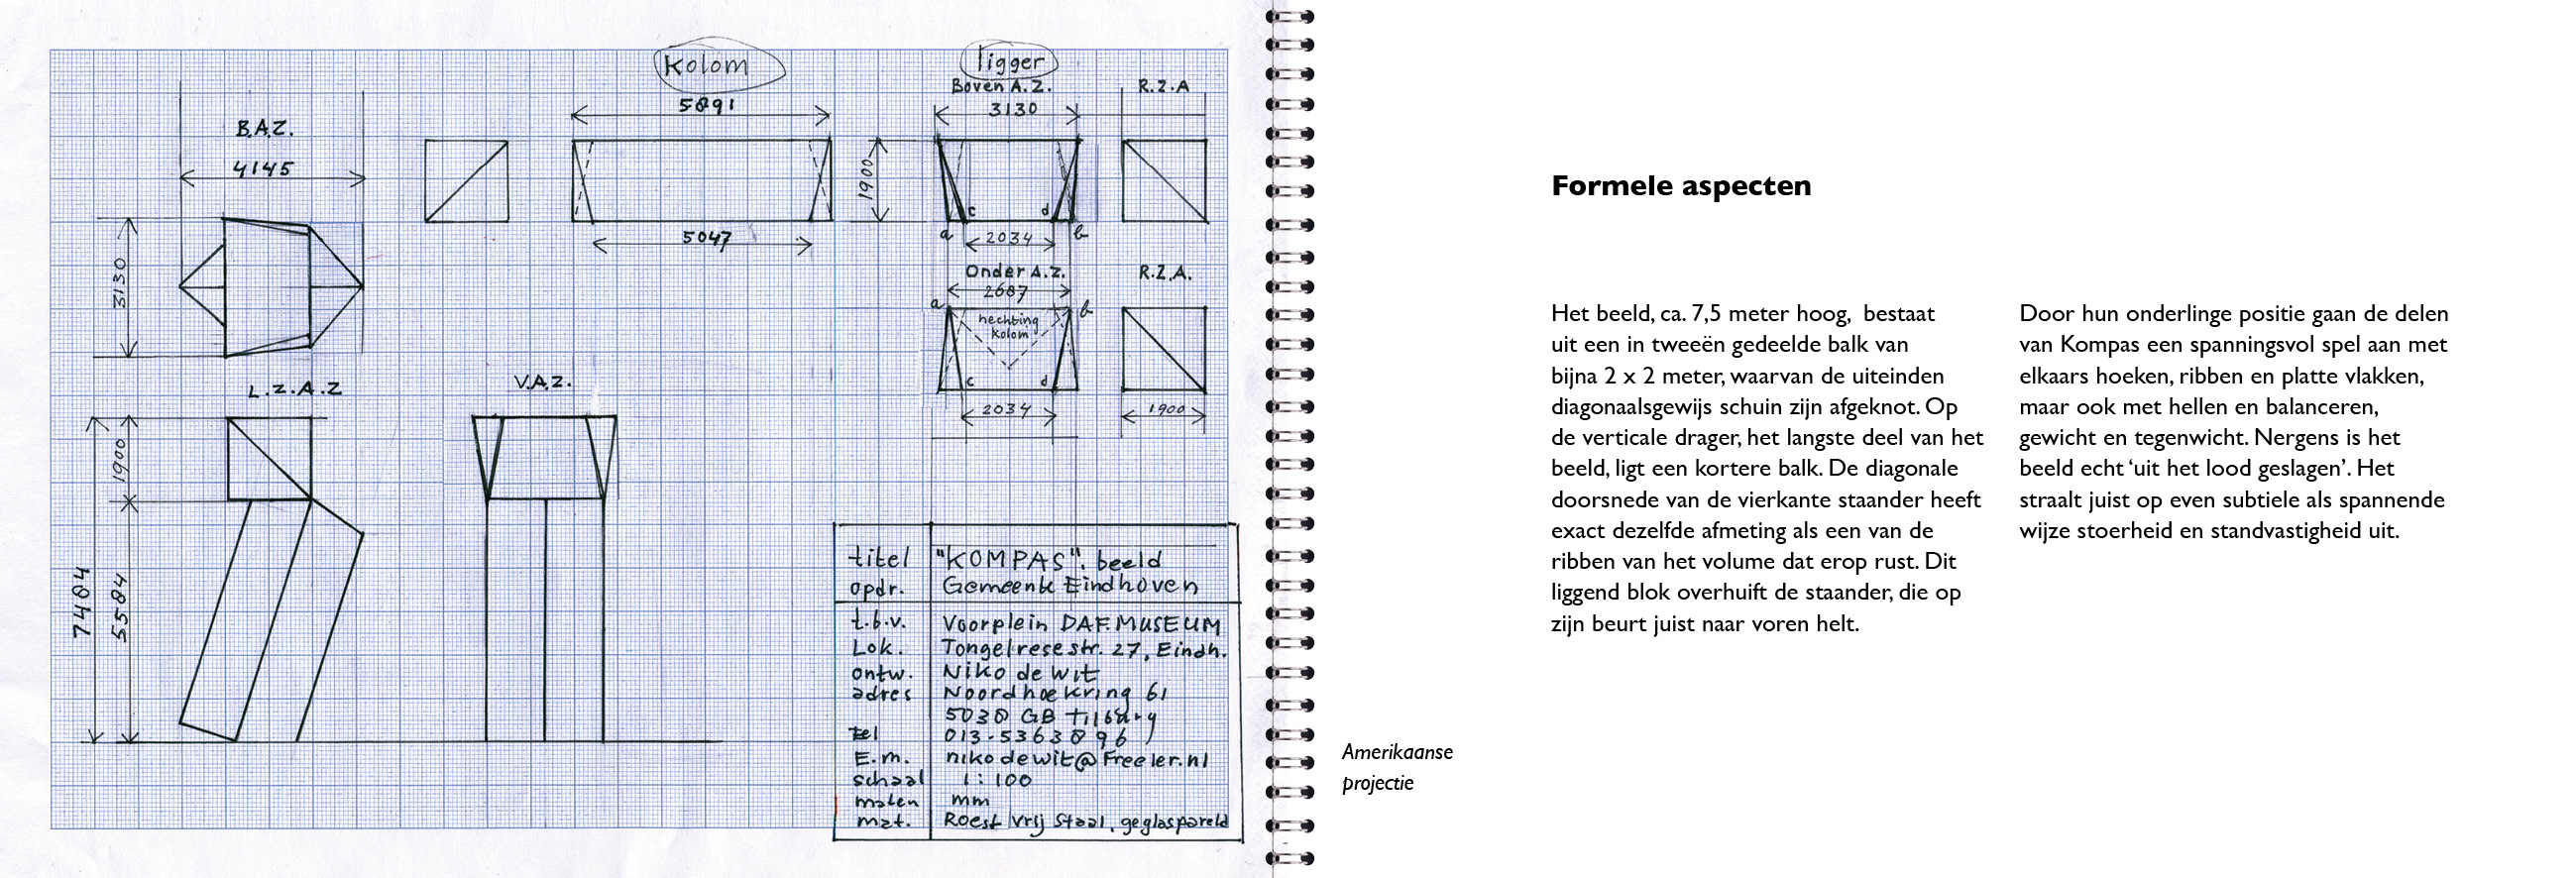 Kolom
ligger
Boven A.Z.
R.Z.A
5891
3130
B.A.Z.
4145
1900
c
d
a
b
5047
2034
3130
Onder A.Z.
R.Z.A.
2687
a
b
hechting
kolom
L.Z.A.Z
V.A.Z.
c
d
2034
1900
1900
7484
5584
titel "KOMPAS". beeld
opdr. Gemeente Eindhoven
t.b.v. Voorplein DAF.MUSEUM
Lok. Tongelresestr. 27, Eindh.
ontw. Niko de Wit
adres Noordhoekring 61
5038 GB Tilburg
tel 013-5363896
E.m. nikodewit@Freeler.nl
schaal 1:100
maten mm
mat. Roest vrij Staal, geglaspareld
Amerikaanse
projectie
Formele aspecten
Het beeld, ca. 7,5 meter hoog, bestaat
uit een in tweeën gedeelde balk van
bijna 2 x 2 meter, waarvan de uiteinden
diagonaalsgewijs schuin zijn afgeknot. Op
de verticale drager, het langste deel van het
beeld, ligt een kortere balk. De diagonale
doorsnede van de vierkante staander heeft
exact dezelfde afmeting als een van de
ribben van het volume dat erop rust. Dit
liggend blok overhuift de staander, die op
zijn beurt juist naar voren helt.
Door hun onderlinge positie gaan de delen
van Kompas een spanningsvol spel aan met
elkaars hoeken, ribben en platte vlakken,
maar ook met hellen en balanceren,
gewicht en tegenwicht. Nergens is het
beeld echt ‘uit het lood geslagen’. Het
straalt juist op even subtiele als spannende
wijze stoerheid en standvastigheid uit.